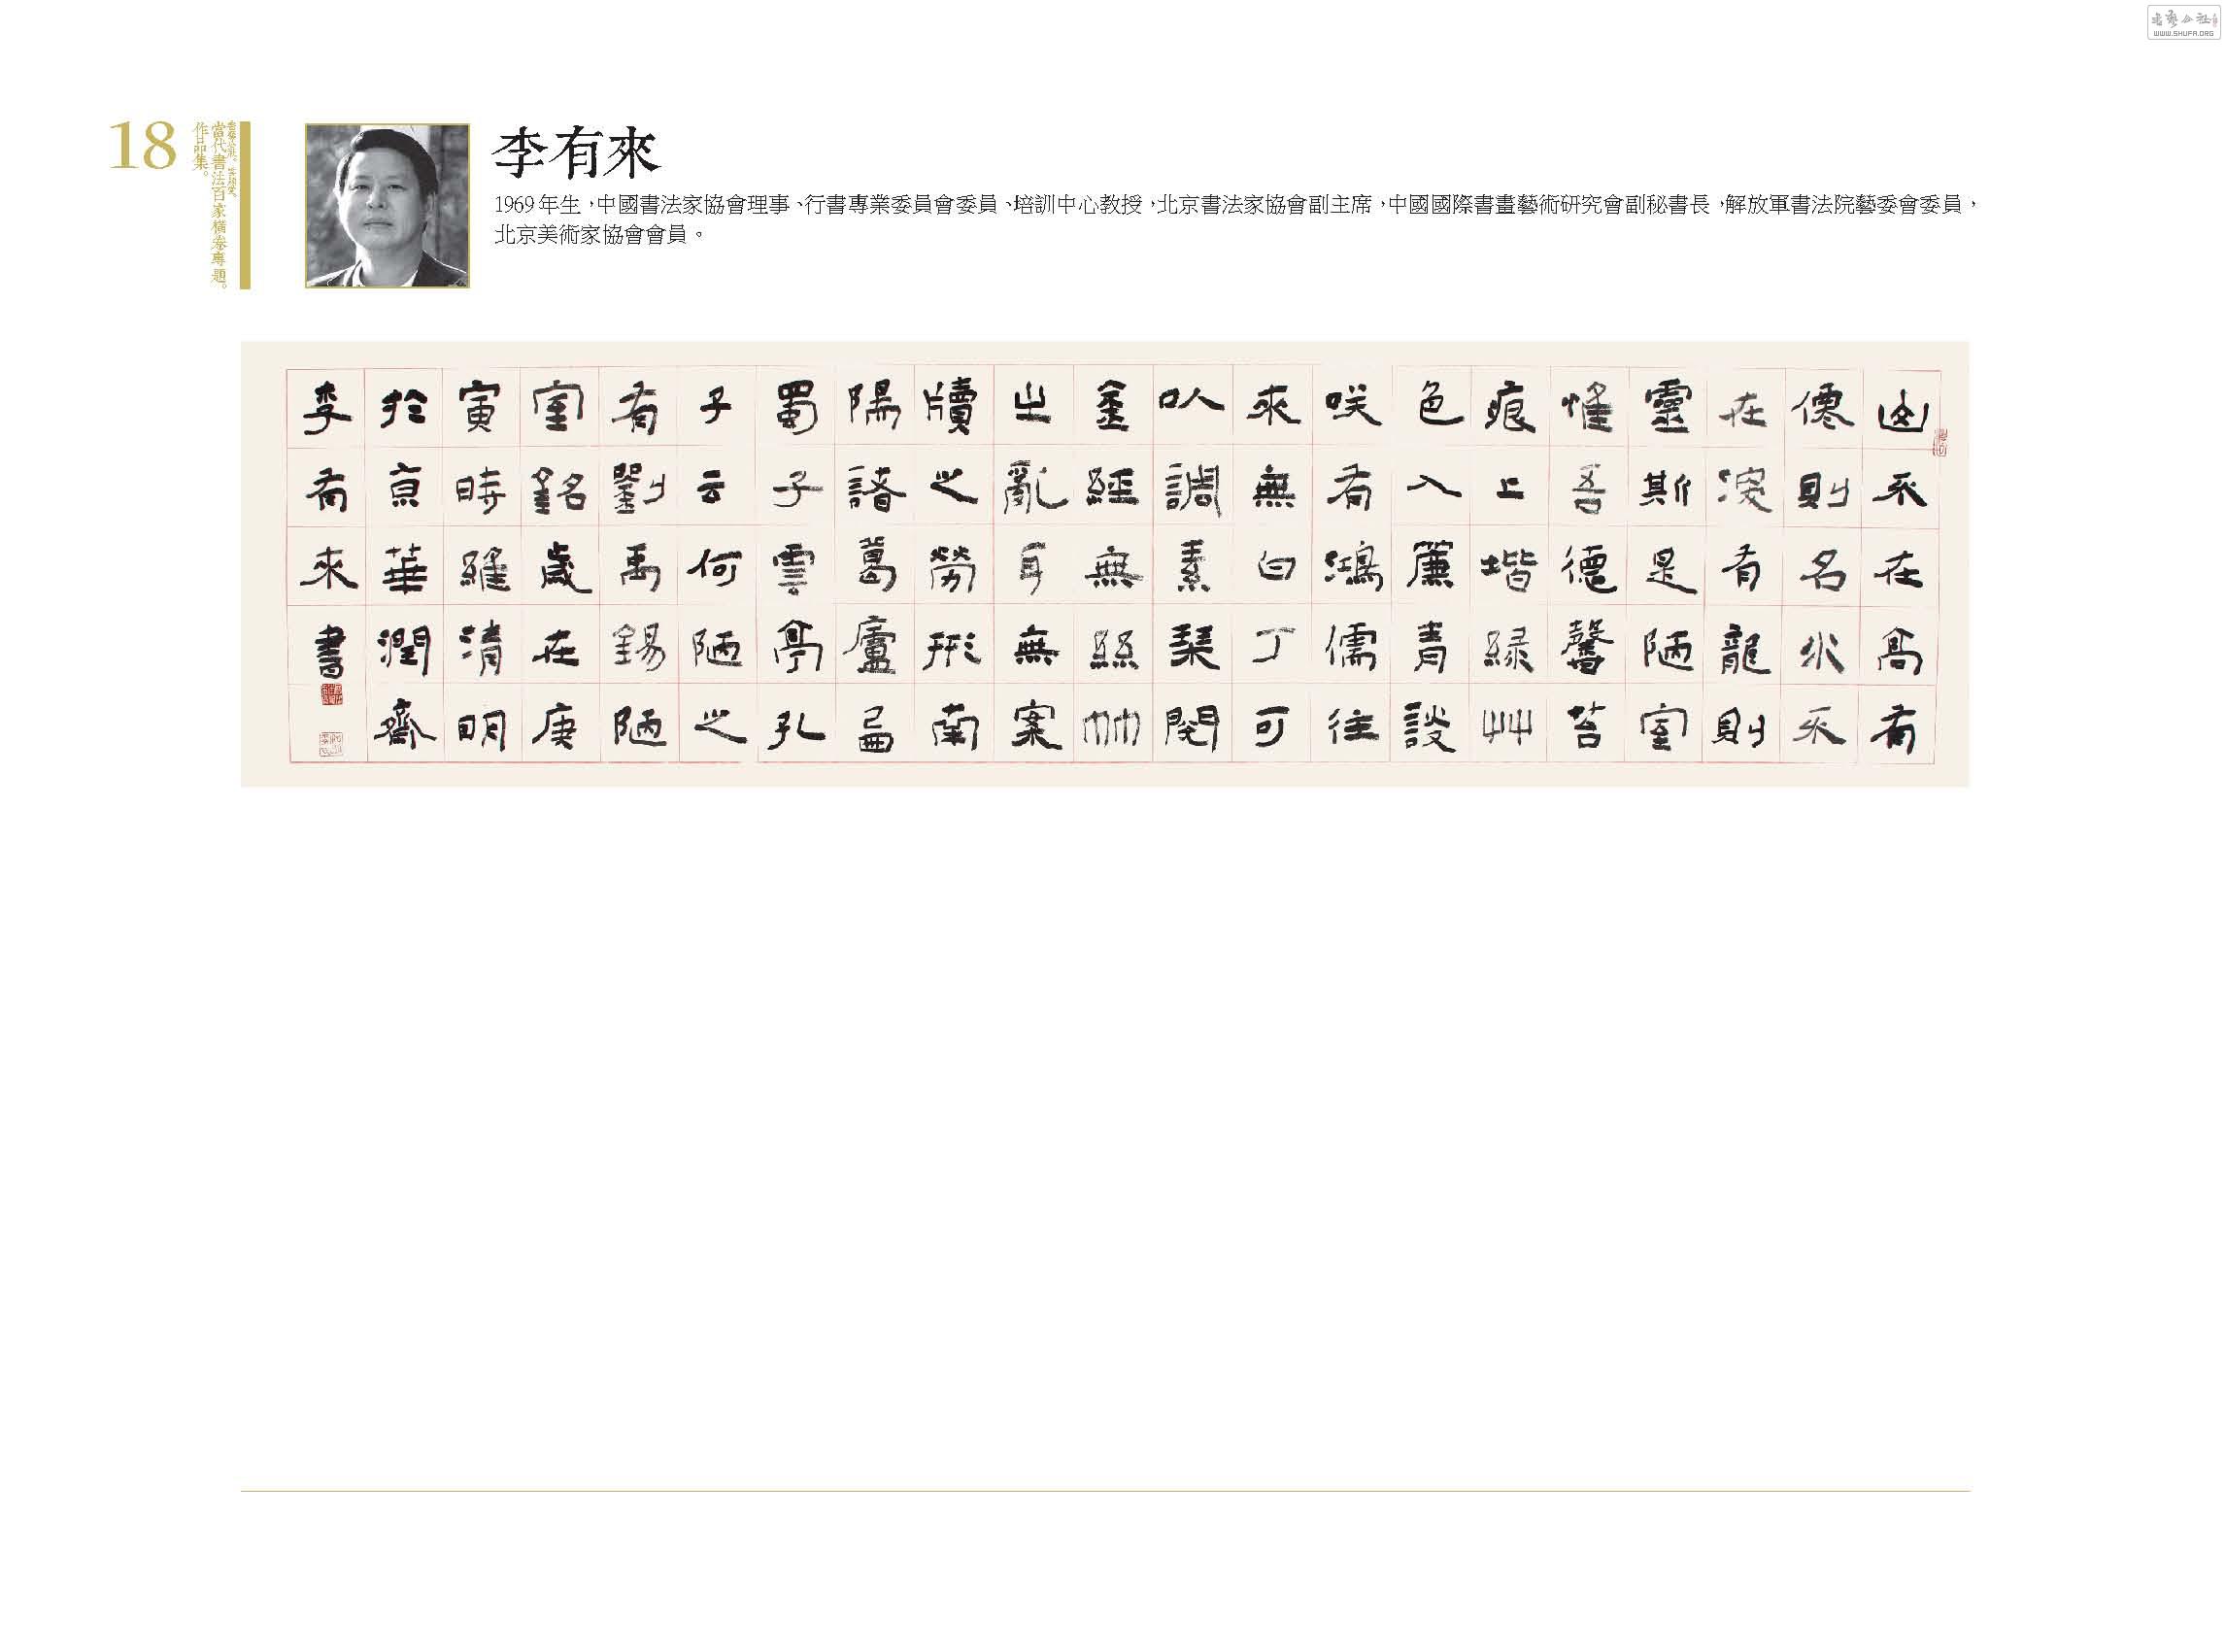 18
當代書法百家橫卷專題。
作品集。
李有來
1969年生，中國書法家協會理事、行書專業委員會委員、培訓中心教授，北京書法家協會副主席，中國國際書畫藝術研究會副秘書長，解放軍書法院藝委會委員，
北京美術家協會會員。
山不在高有
僊則名水不
在深有龍則
靈斯是陋室
惟吾德馨苔
痕上堦緑艸
色入簾青談
咲有鴻儒往
來無白丁可
以調素琴閱
金經無絲竹
之亂耳無案
牘之勞形南
陽諸葛廬西
蜀子雲亭孔
子云何陋之
有劉禹錫陋
室銘歲在庚
寅時維清明
於京華潤齋
李有來書
WWW.SHUFA.ORG